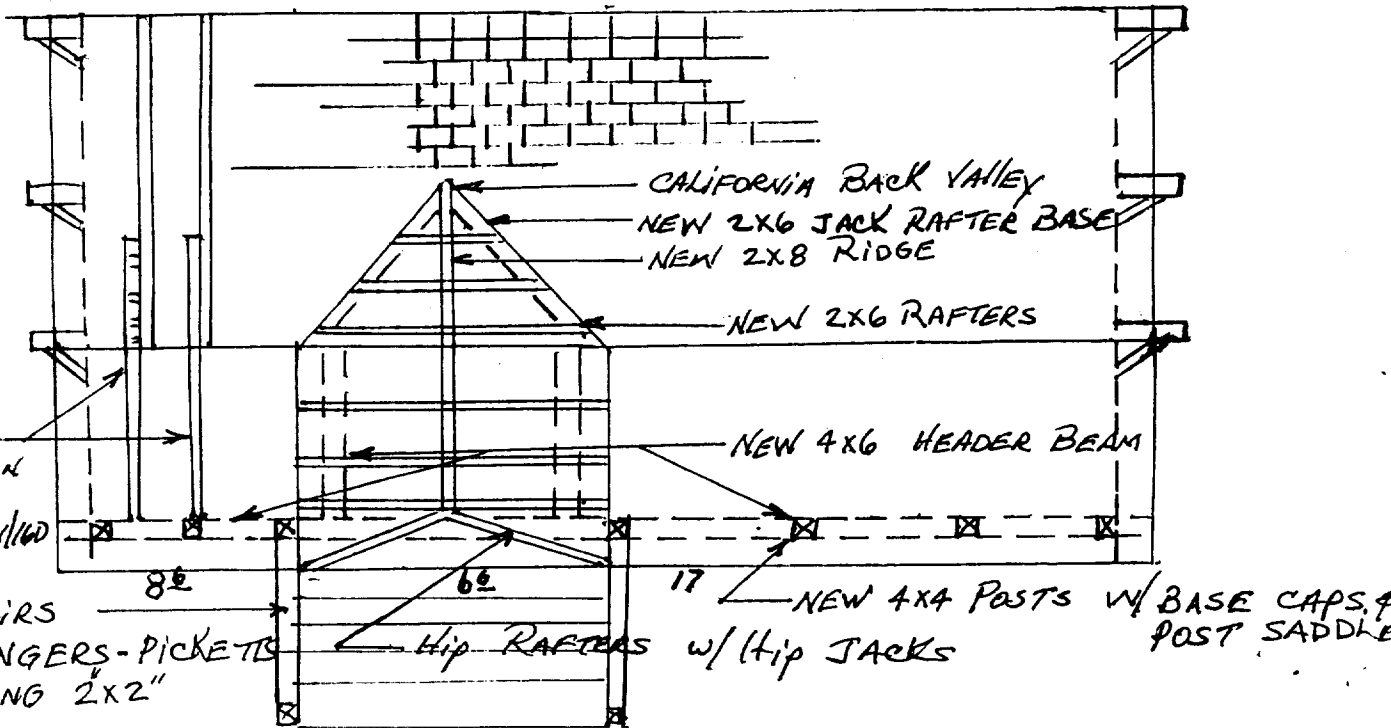 CALIFORNIA BACK VALLEY
NEW 2X6 JACK RAFTER BASE
NEW 2X8 RIDGE
NEW 2X6 RAFTERS
NEW 4X6 HEADER BEAM
N
W/16D
8 6
6 6
17
IRS
NEW 4X4 POSTS W/ BASE CAPS. &
POST SADDLE
NGERS - PICKETTS
Hip RAFTERS W/ Hip JACKS
NG 2"X2"